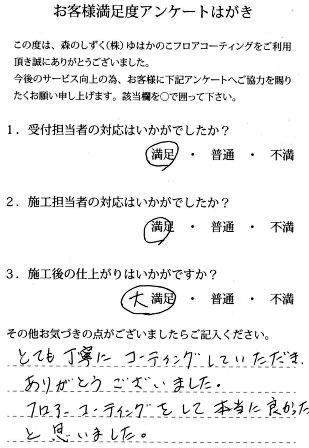 お客様満足度アンケートはがき
この度は、森のしずく(株)ゆはかのこフロアコーティングをご利用
頂き誠にありがとうございました。
今後のサービス向上の為、お客様に下記アンケートへご協力を賜り
たくお願い申し上げます。該当欄を○で囲って下さい。
1．受付担当者の対応はいかがでしたか？
満足 ・ 普通 ・ 不満
2．施工担当者の対応はいかがでしたか？
満足 ・ 普通 ・ 不満
3．施工後の仕上がりはいかがですか？
大満足 ・ 普通 ・ 不満
その他お気づきの点がございましたらご記入ください。
とても丁寧にコーティングしていただき、
ありがとうございました。
フロアーコーティングをして本当に良かった
と思いました。